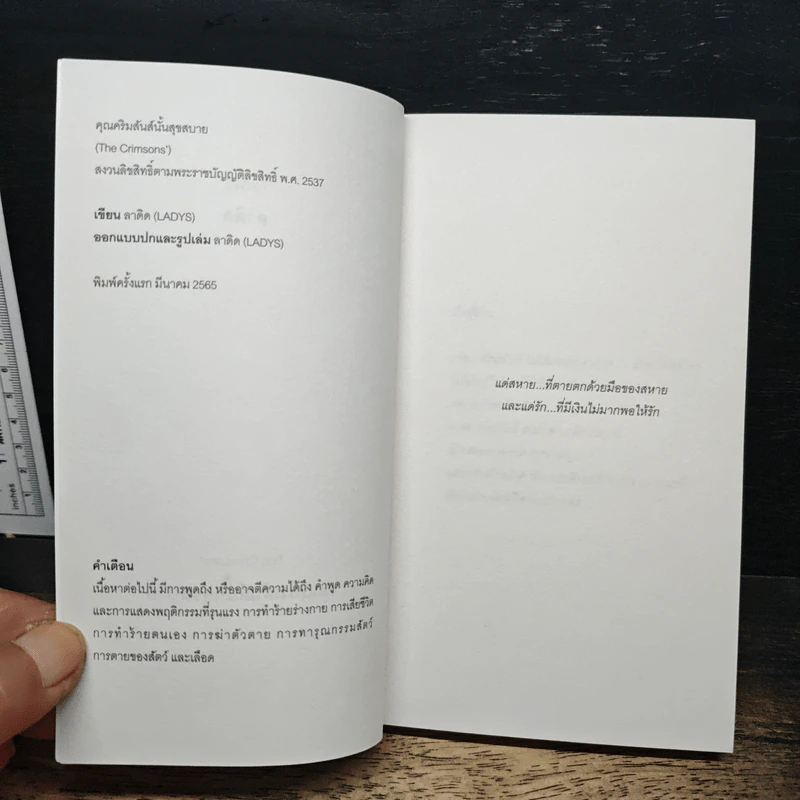 คุณคริมสันส์นั้นสุขสบาย
(The Crimsons')
สงวนลิขสิทธิ์ตามพระราชบัญญัติลิขสิทธิ์ พ.ศ. 2537
เขียน ลาดิด (LADYS)
ออกแบบปกและรูปเล่ม ลาดิด (LADYS)
พิมพ์ครั้งแรก มีนาคม 2565
คำเตือน
เนื้อหาต่อไปนี้ มีการพูดถึง หรืออาจตีความได้ถึง คำพูด ความคิด
และการแสดงพฤติกรรมที่รุนแรง การทำร้ายร่างกาย การเสียชีวิต
การทำร้ายตนเอง การฆ่าตัวตาย การทารุณกรรมสัตว์
การตายของสัตว์ และเลือด
แด่สหาย...ที่ตายตกด้วยมือของสหาย
และแด่รัก...ที่มีเงินไม่มากพอให้รัก
inches
1
2
3
4
5
6